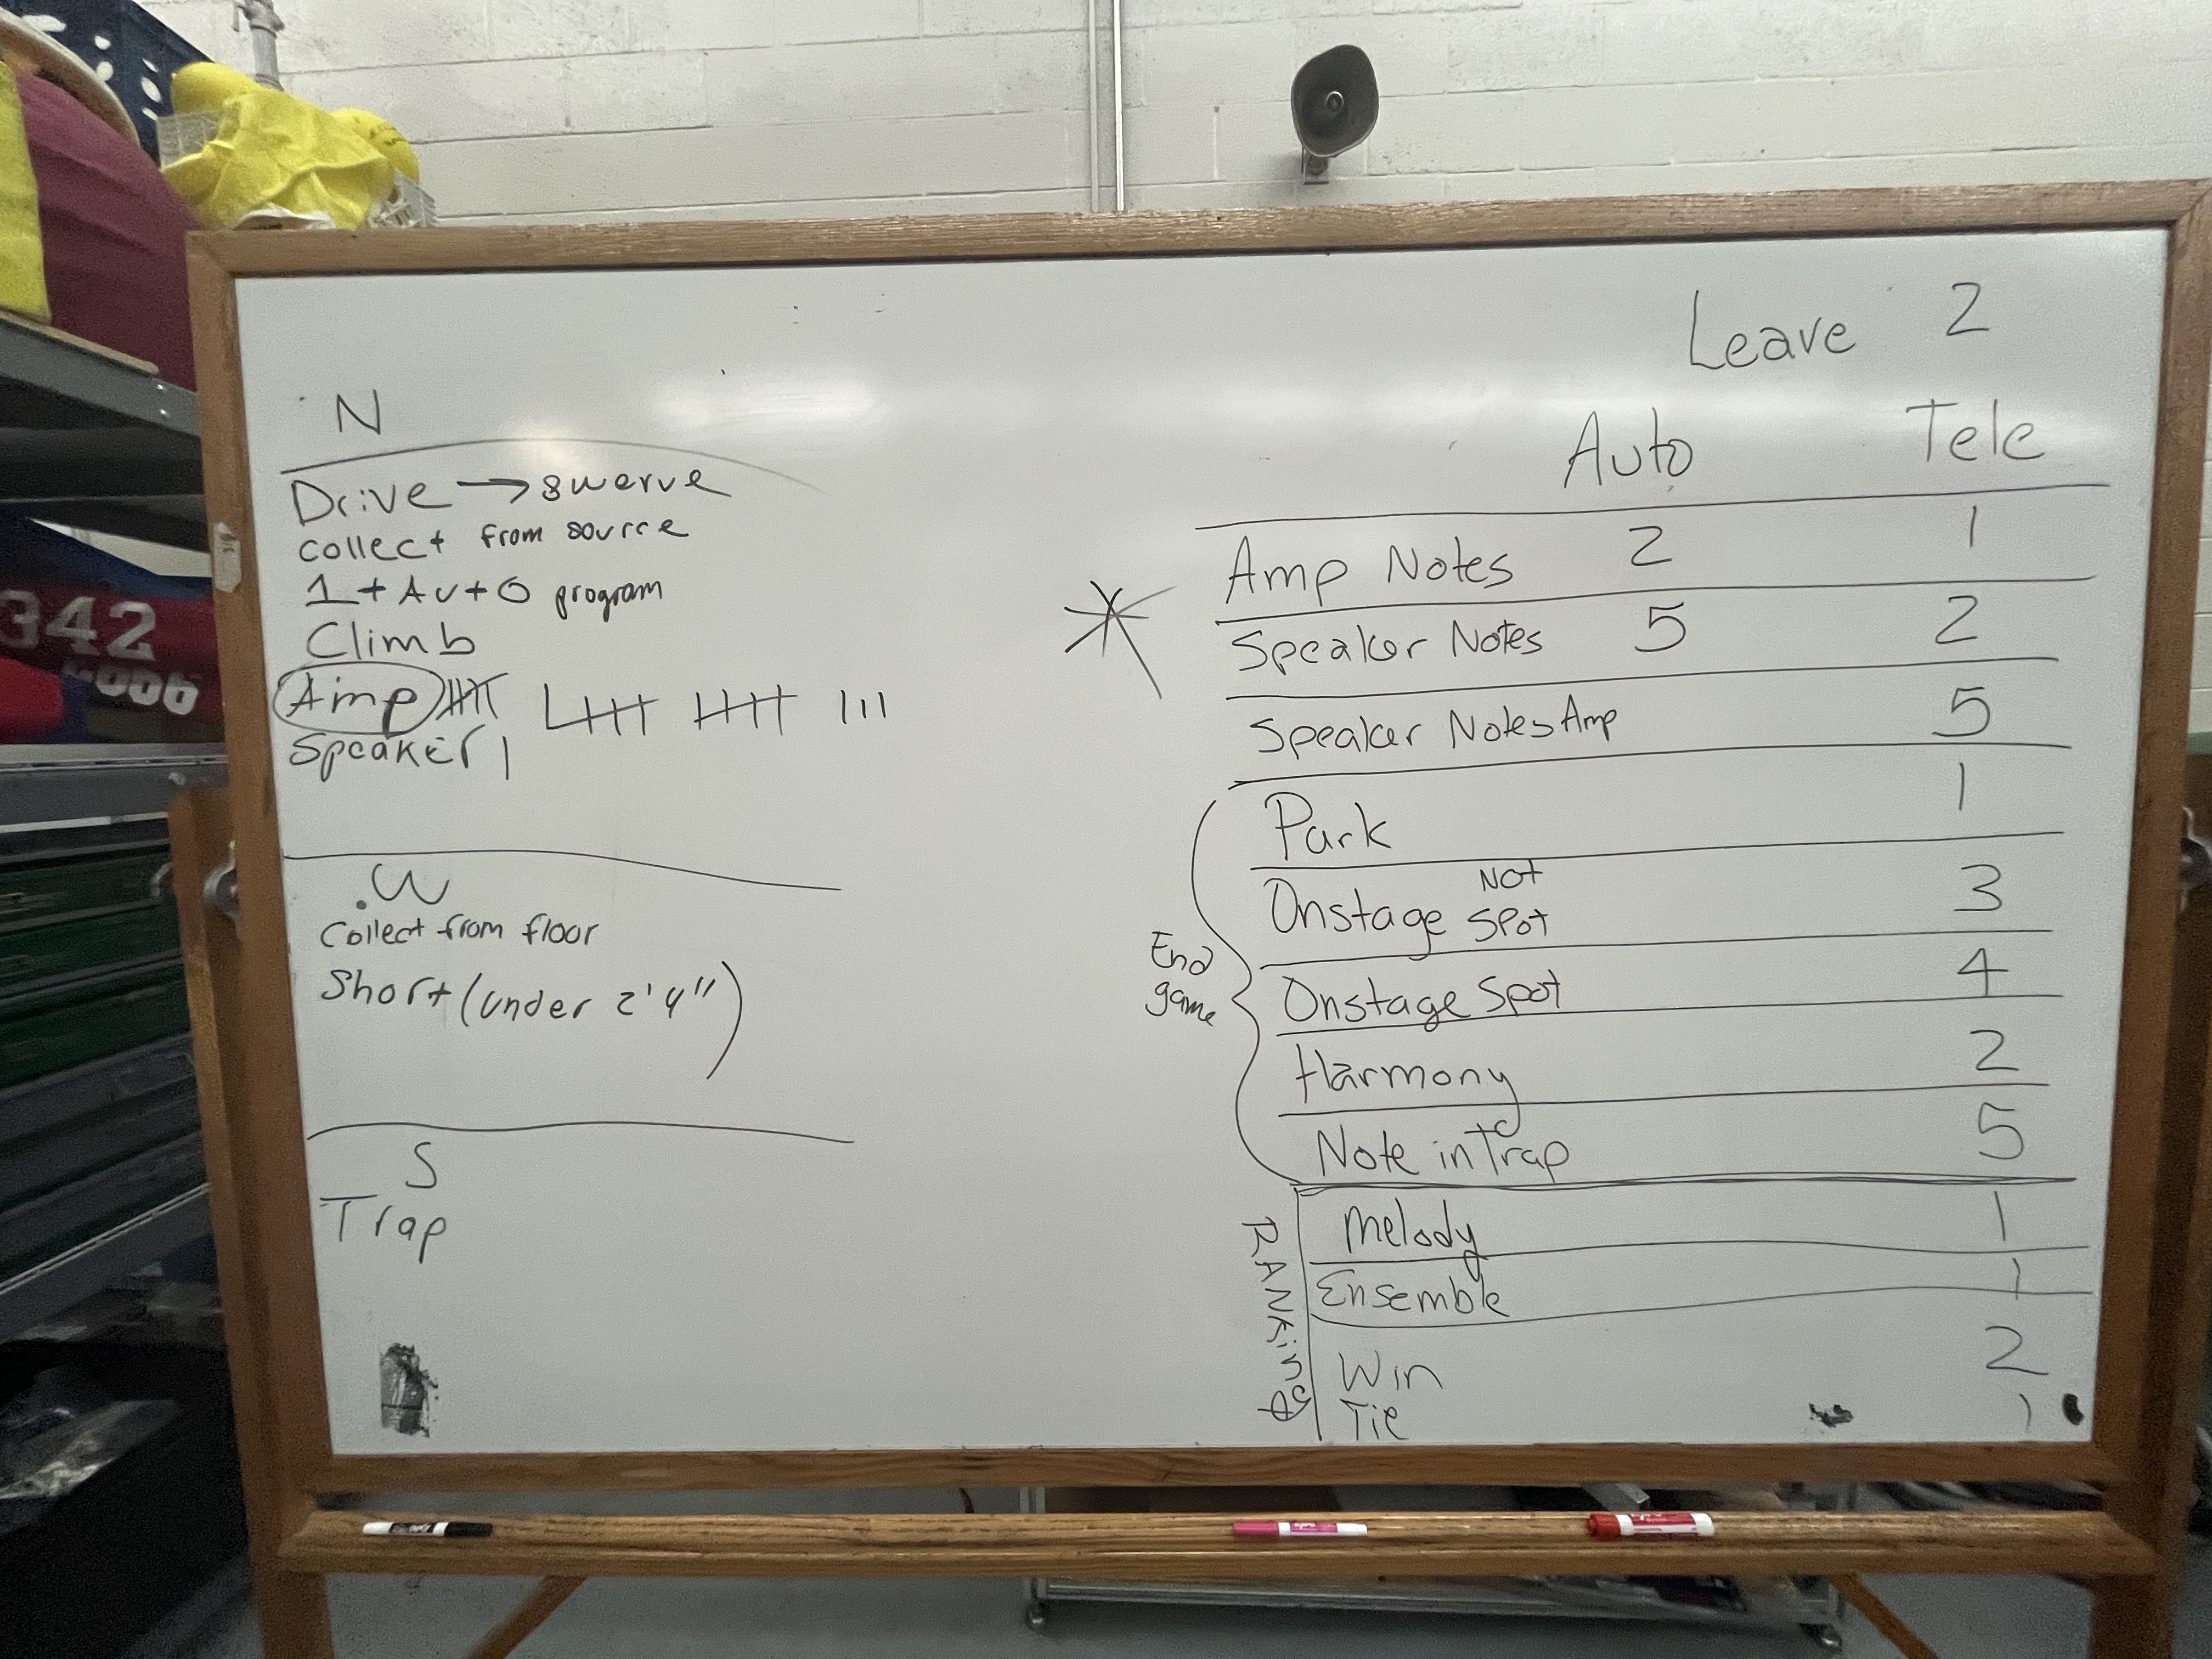 N
Drive → swerve
collect from source
1+ Auto program
Climb
Amp
Speaker
W
Collect from floor
Short (under 2'4")
S
Trap
Leave 2
Auto Tele
Amp Notes 2 1
Speaker Notes 5 2
Speaker Notes Amp 5
Park 1
Onstage Not Spot 3
Onstage Spot 4
Harmony 2
Note in Trap 5
End game
Melody 1
Ensemble 1
Win 2
Tie 1
RANKing
342